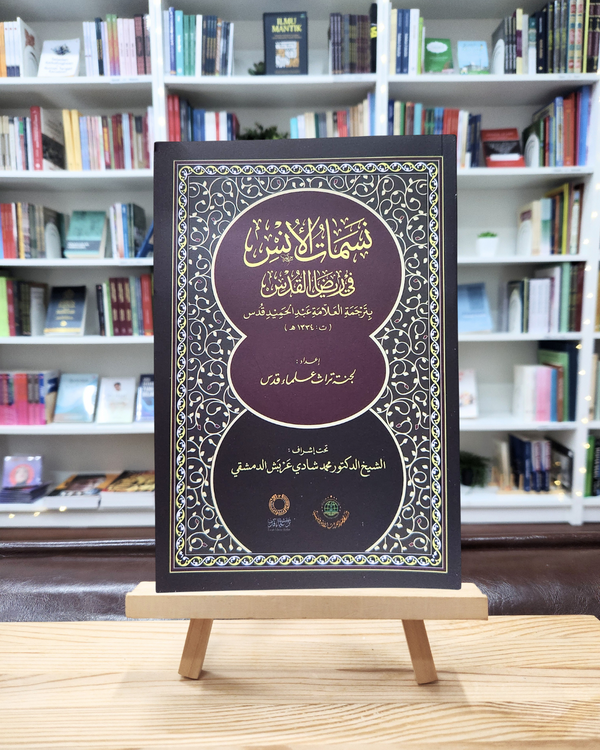 ILMU
MANTIK
نَسَمَاتُ الأُنْسِ
فِي رِيَاضِ القُدْسِ
بِتَرْجَمَةِ العَلَّامَةِ عَبْدِ الحَمِيْدِ قُدْس
( ت : ١٣٣٤ هـ )
إعداد :
لجنة تراث علماء قدس
تحت إشراف :
الشيخ الدكتور محمد شادي عربش الدمشقي